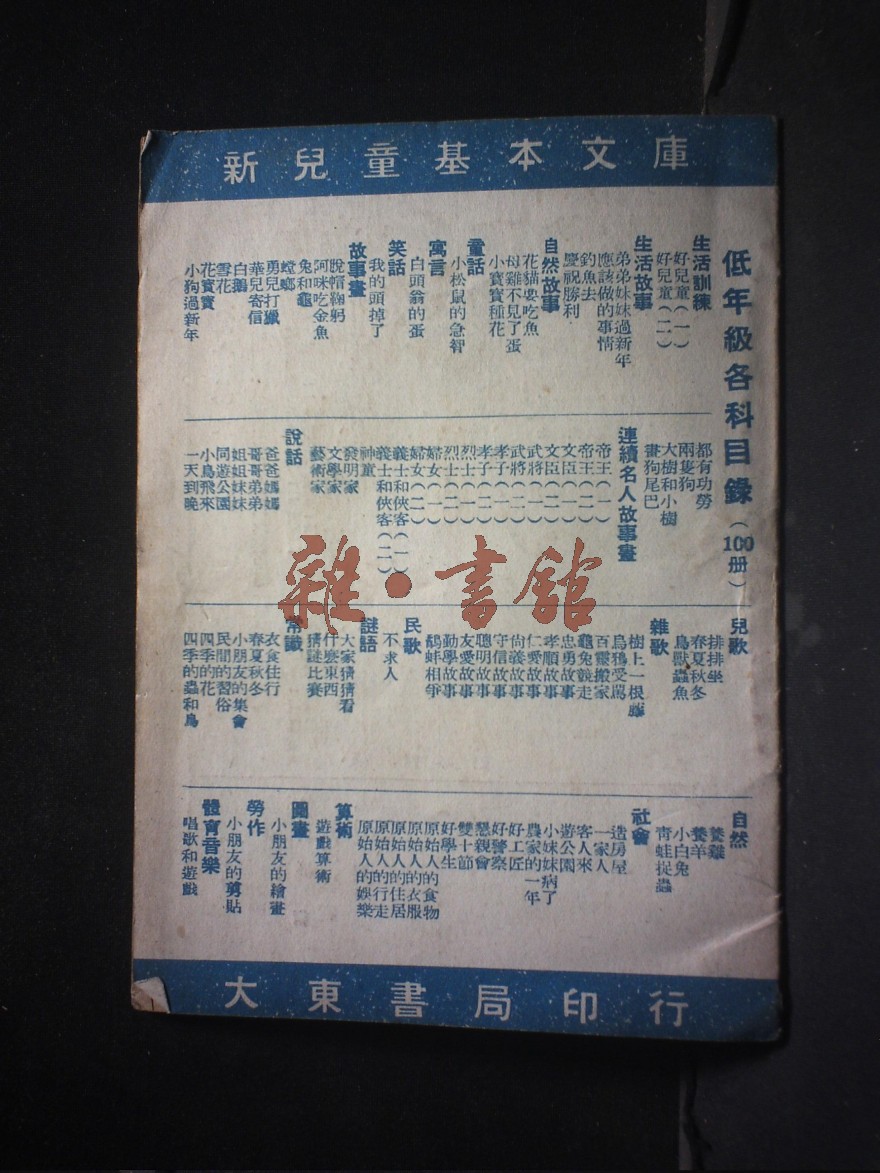 新兒童基本文庫
低年級各科目錄（100册）
生活訓練
好兒童（一）
好兒童（二）
生活故事
弟弟妹妹過新年
應該做的事情
釣魚去
慶祝勝利
自然故事
花貓要吃魚
母雞不見了蛋
小寶寶種花
童話
小松鼠的急智
寓言
白頭翁的蛋
笑話
我的頭掉了
故事畫
脫帽鞠躬
阿咪吃金魚
兔和龜
螳螂
勇兒打獵
華兒寄信
白鵝
雪花
花寶寶
小狗過新年
都有功勞
兩隻狗
大樹和小樹
畫狗尾巴
連續名人故事畫
帝王（一）
帝王（二）
文臣（一）
文臣（二）
武將（一）
武將（二）
孝子（一）
孝子（二）
烈士（一）
烈士（二）
婦女（一）
婦女（二）
義士和俠客（一）
義士和俠客（二）
神童
發明家
文學家
藝術家
說話
爸爸媽媽
哥哥弟弟
姐姐妹妹
同遊公園
小鳥飛來
一天到晚
兒歌
排排坐
春夏秋冬
鳥獸蟲魚
雜歌
樹上一根藤
烏鴉受罵
百靈搬家
龜兔競走
忠勇故事
孝順故事
仁愛故事
尚義故事
守信故事
聰明故事
友愛故事
勤學故事
鷸蚌相爭
民歌
不求人
謎語
大家猜猜看
什麼東西
猜謎比賽
常識
衣食住行
春夏秋冬
小朋友的集會
民間的習俗
四季的花
四季的蟲和鳥
自然
養雞
養羊
小白兔
青蛙捉蟲
社會
造房屋
一家人
客人來
遊公園
小妹妹病了
農家的一年
好工匠
好警察
懇親會
雙十節
好學生
原始人的食物
原始人的衣服
原始人的住居
原始人的行走
原始人的娛樂
算術
遊戲算術
圖畫
小朋友的繪畫
勞作
小朋友的剪貼
體育音樂
唱歌和遊戲
大東書局印行
雜·書館